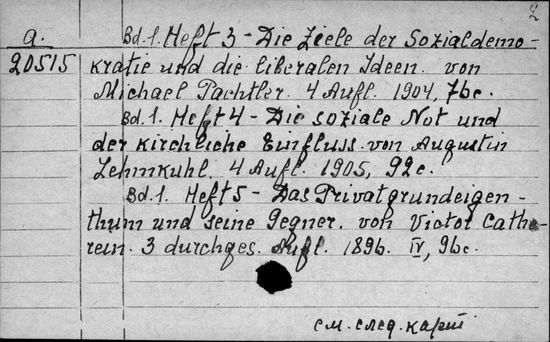 2
a. Bd. 1. Heft 3 - Die Ziele der Sozialdemo-
20515 kratie und die liberalen Ideen. von
Michael Pachtler. 4 Aufl. 1904, 76c.
Bd. 1. Heft 4 - Die soziale Not und
der kirchliche Einfluss. von Augustin
Lehmkuhl. 4 Aufl. 1905, 92c.
Bd. 1. Heft 5 - Das Privatgrundeigen-
thum und seine Gegner. von Victor Cath-
rein. 3 durchges. Aufl. 1896. IV, 96c.
см. след. карт